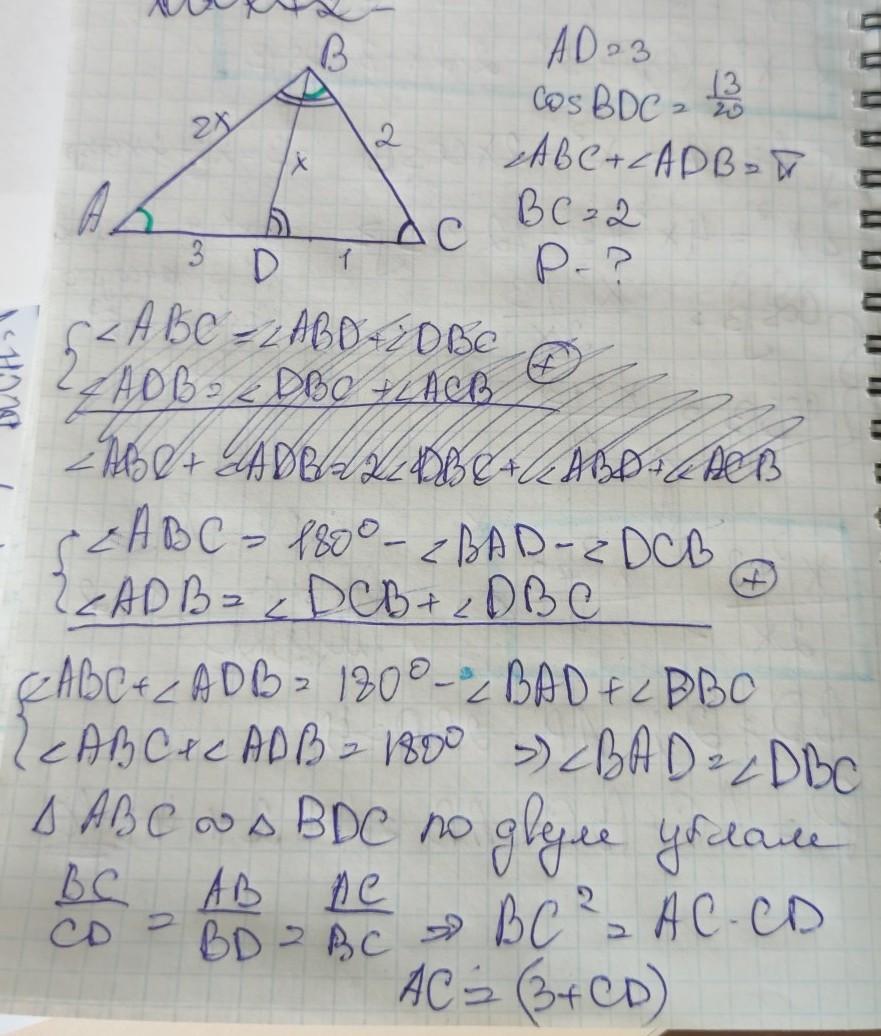 B
AD = 3
cosBDC = 13/20
2x
2
x
∠ABC+∠ADB=π
A
C
BC = 2
3
D
1
P-?
{∠ABC = ∠ABD+∠DBC
∠ADB = ∠DBC +∠ACB
+
∠ABC+∠ADB=2∠DBC+∠ABD+∠ACB
{∠ABC = 180° - ∠BAD - ∠DCB
∠ADB = ∠DCB + ∠DBC
+
{∠ABC+∠ADB = 180° - ∠BAD + ∠DBC
∠ABC+∠ADB = 180° ⇒ ∠BAD = ∠DBC
Δ ABC ∞ Δ BDC по двум углам
BC/CD = AB/BD = AC/BC ⇒ BC² = AC·CD
AC = (3+CD)